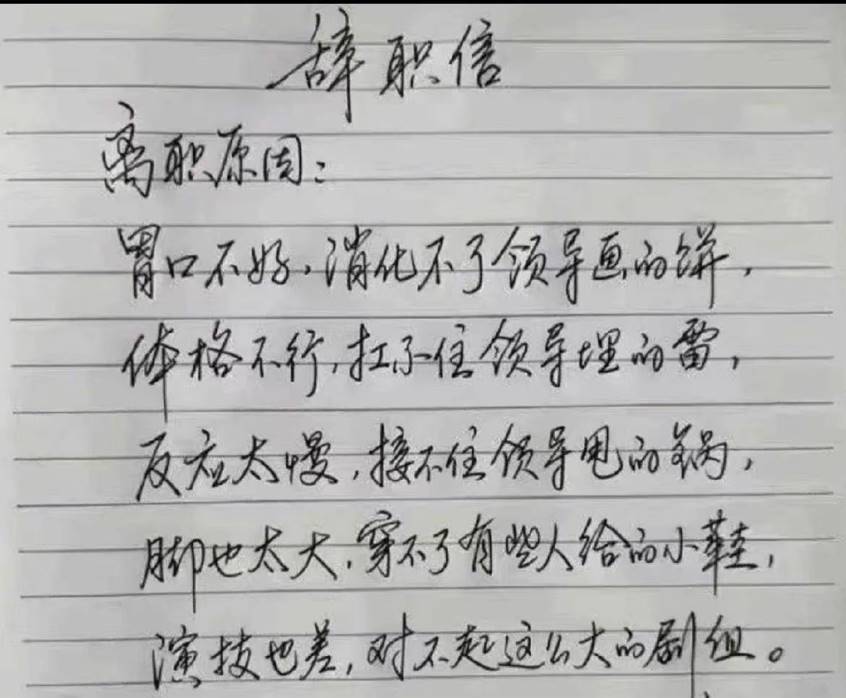 辞职信
离职原因：
胃口不好，消化不了领导画的饼，
体格不行，扛不住领导埋的雷，
反应太慢，接不住领导甩的锅，
脚也太大，穿不了有些人给的小鞋，
演技也差，对不起这么大的剧组。